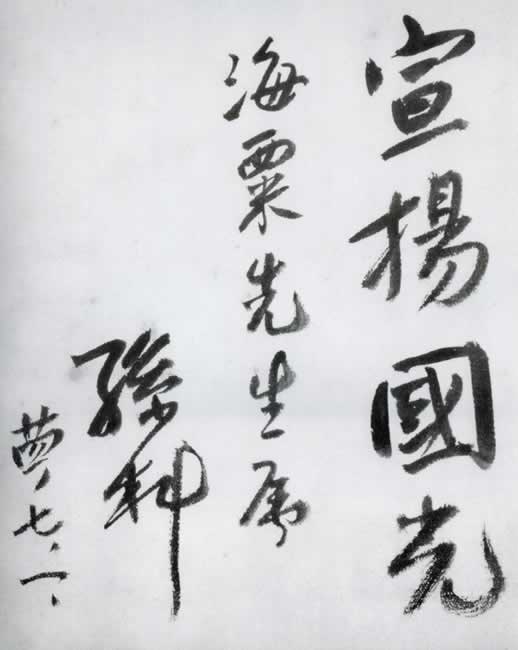 宣揚國光
海粟先生属
孫科
廿四、七、一、